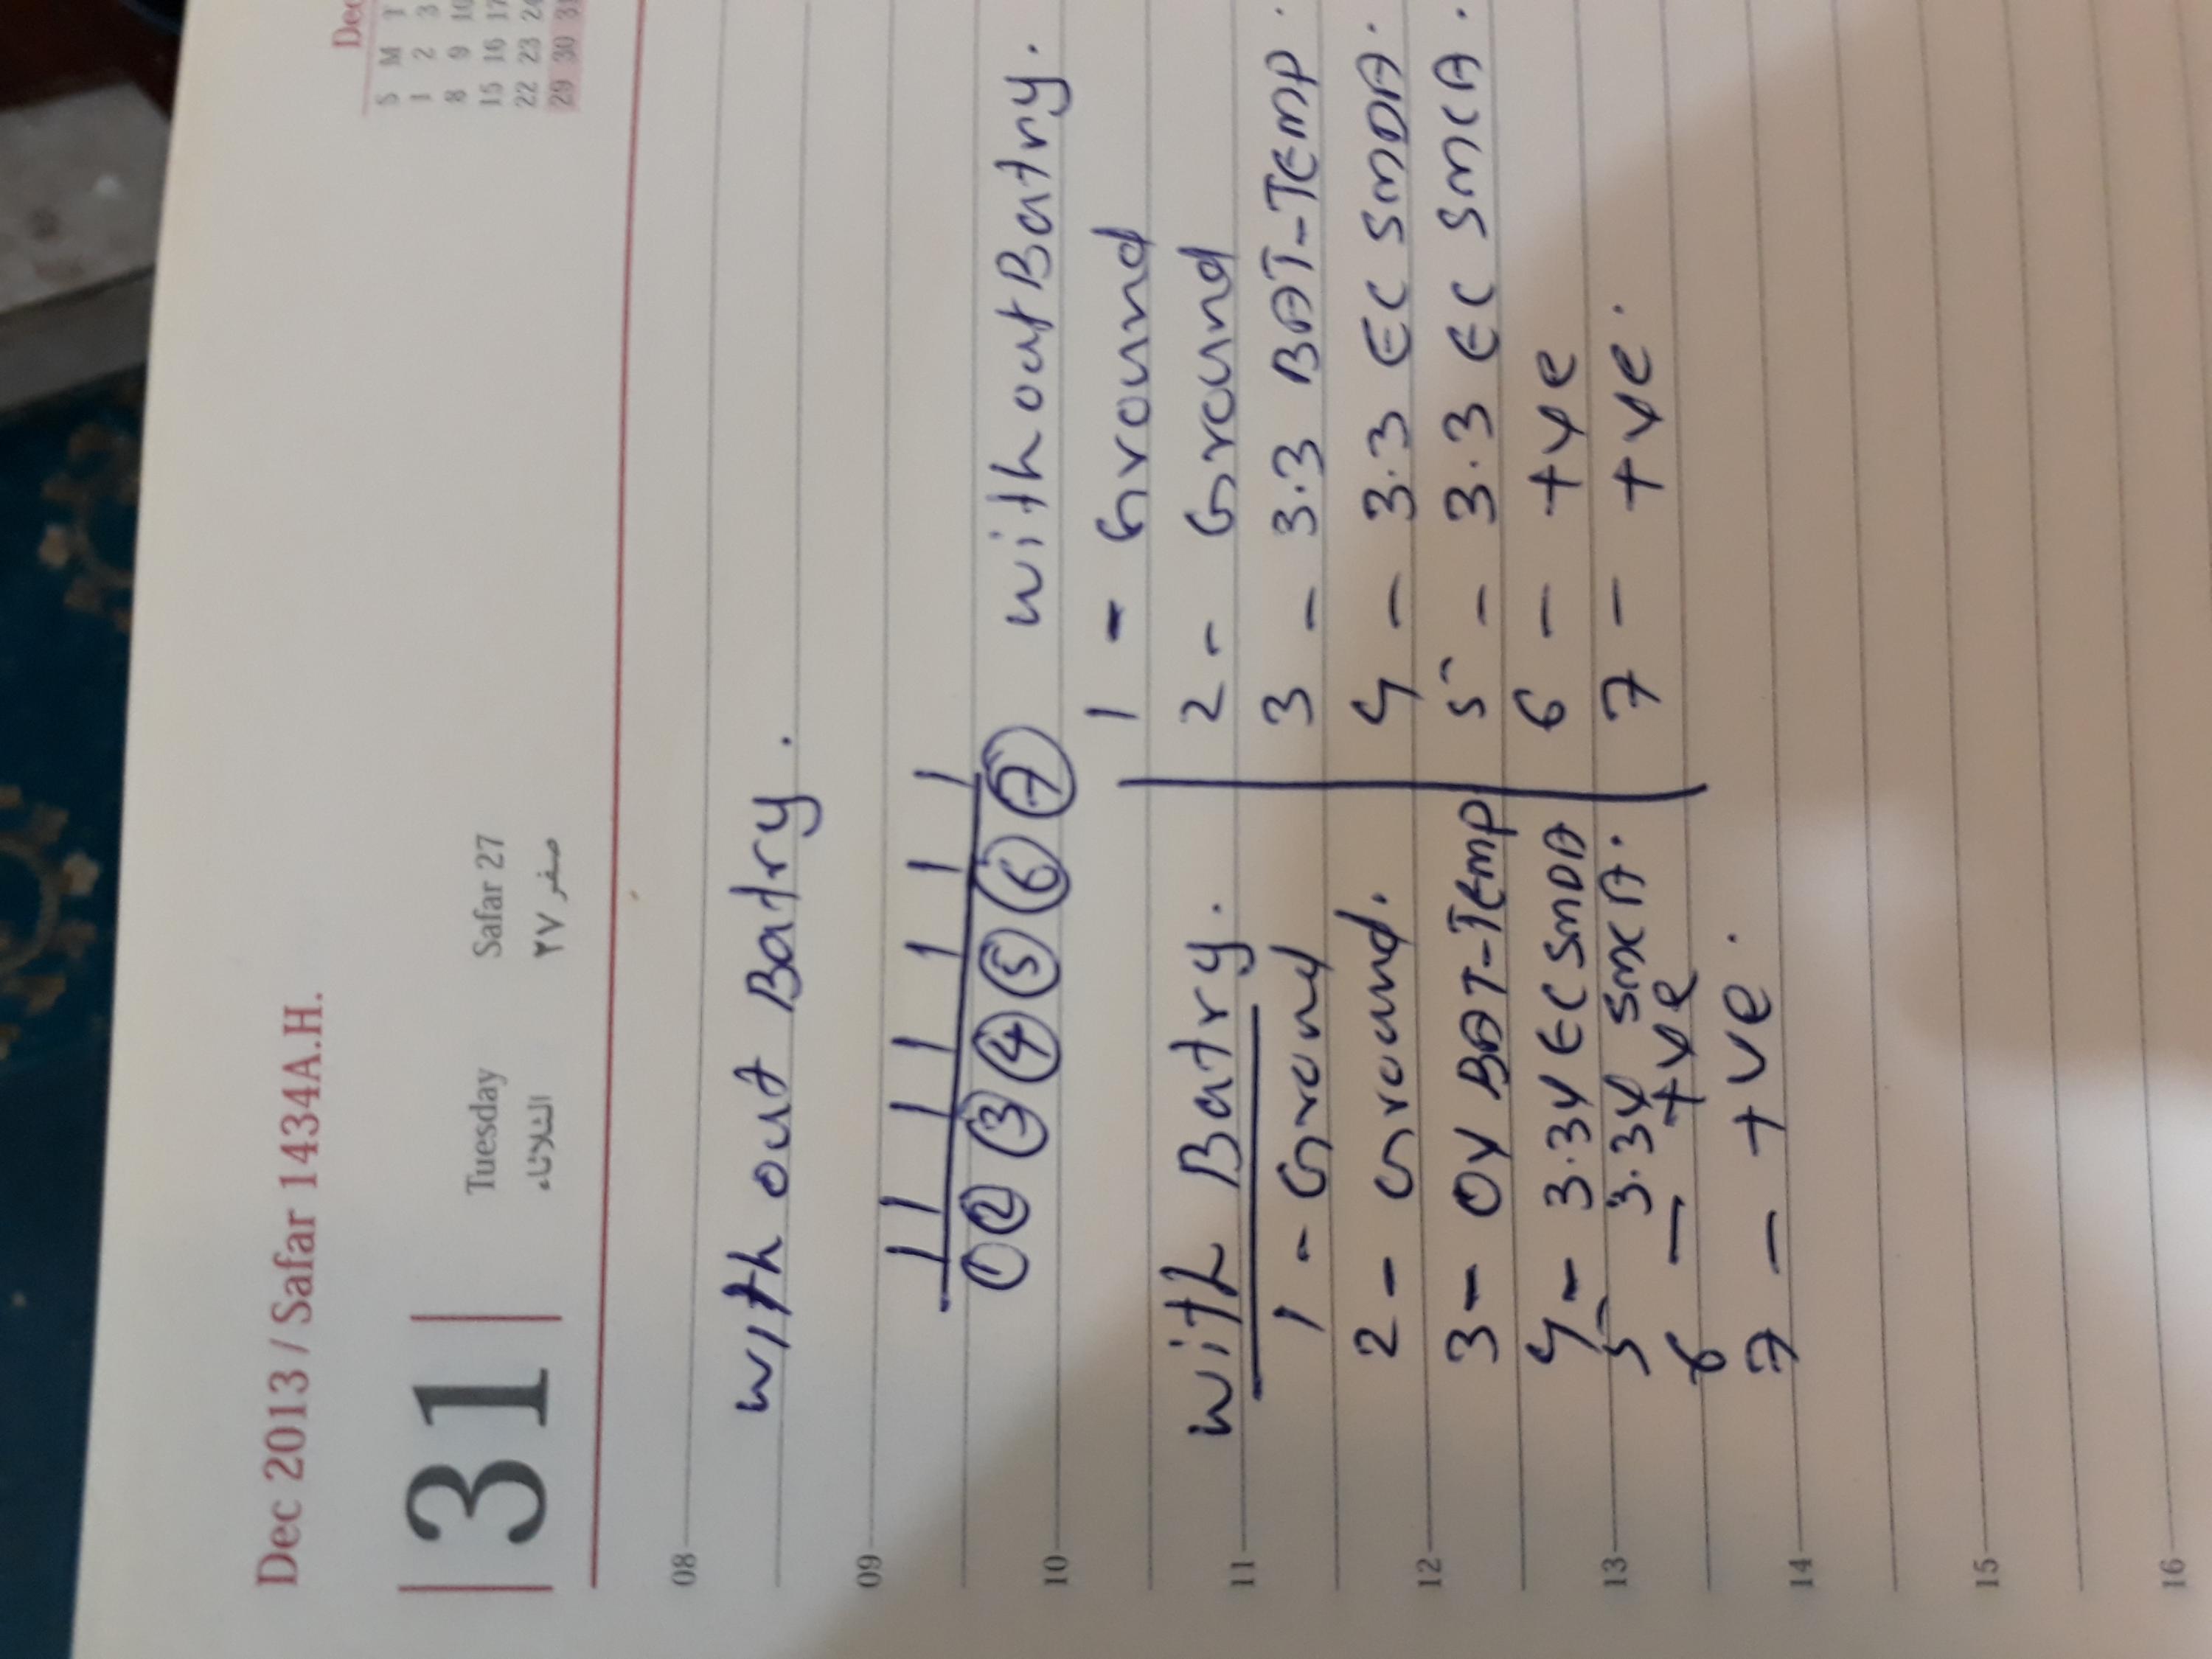 Dec 2013 / Safar 1434A.H.
31
Tuesday Safar 27
الثلاثاء صفر ٢٧
Dec
S M T
1 2 3
8 9 10
15 16 17
22 23 24
29 30 31
08
with out Batry.
09
1 2 3 4 5 6 7
10
with out Batry.
1 - Ground
2 - Ground
3 - 3.3 BAT-TEMP.
4 - 3.3 EC SMDA.
5 - 3.3 EC SMCA.
6 - +ve
7 - +ve.
11
with Batry.
1 - Grond
2 - Ground.
12
3 - 0V BAT-TEMP
4 - 3.3V EC SMDA
13
5 - 3.3V SMCA.
6 - +ve
7 - +ve.
14
15
16